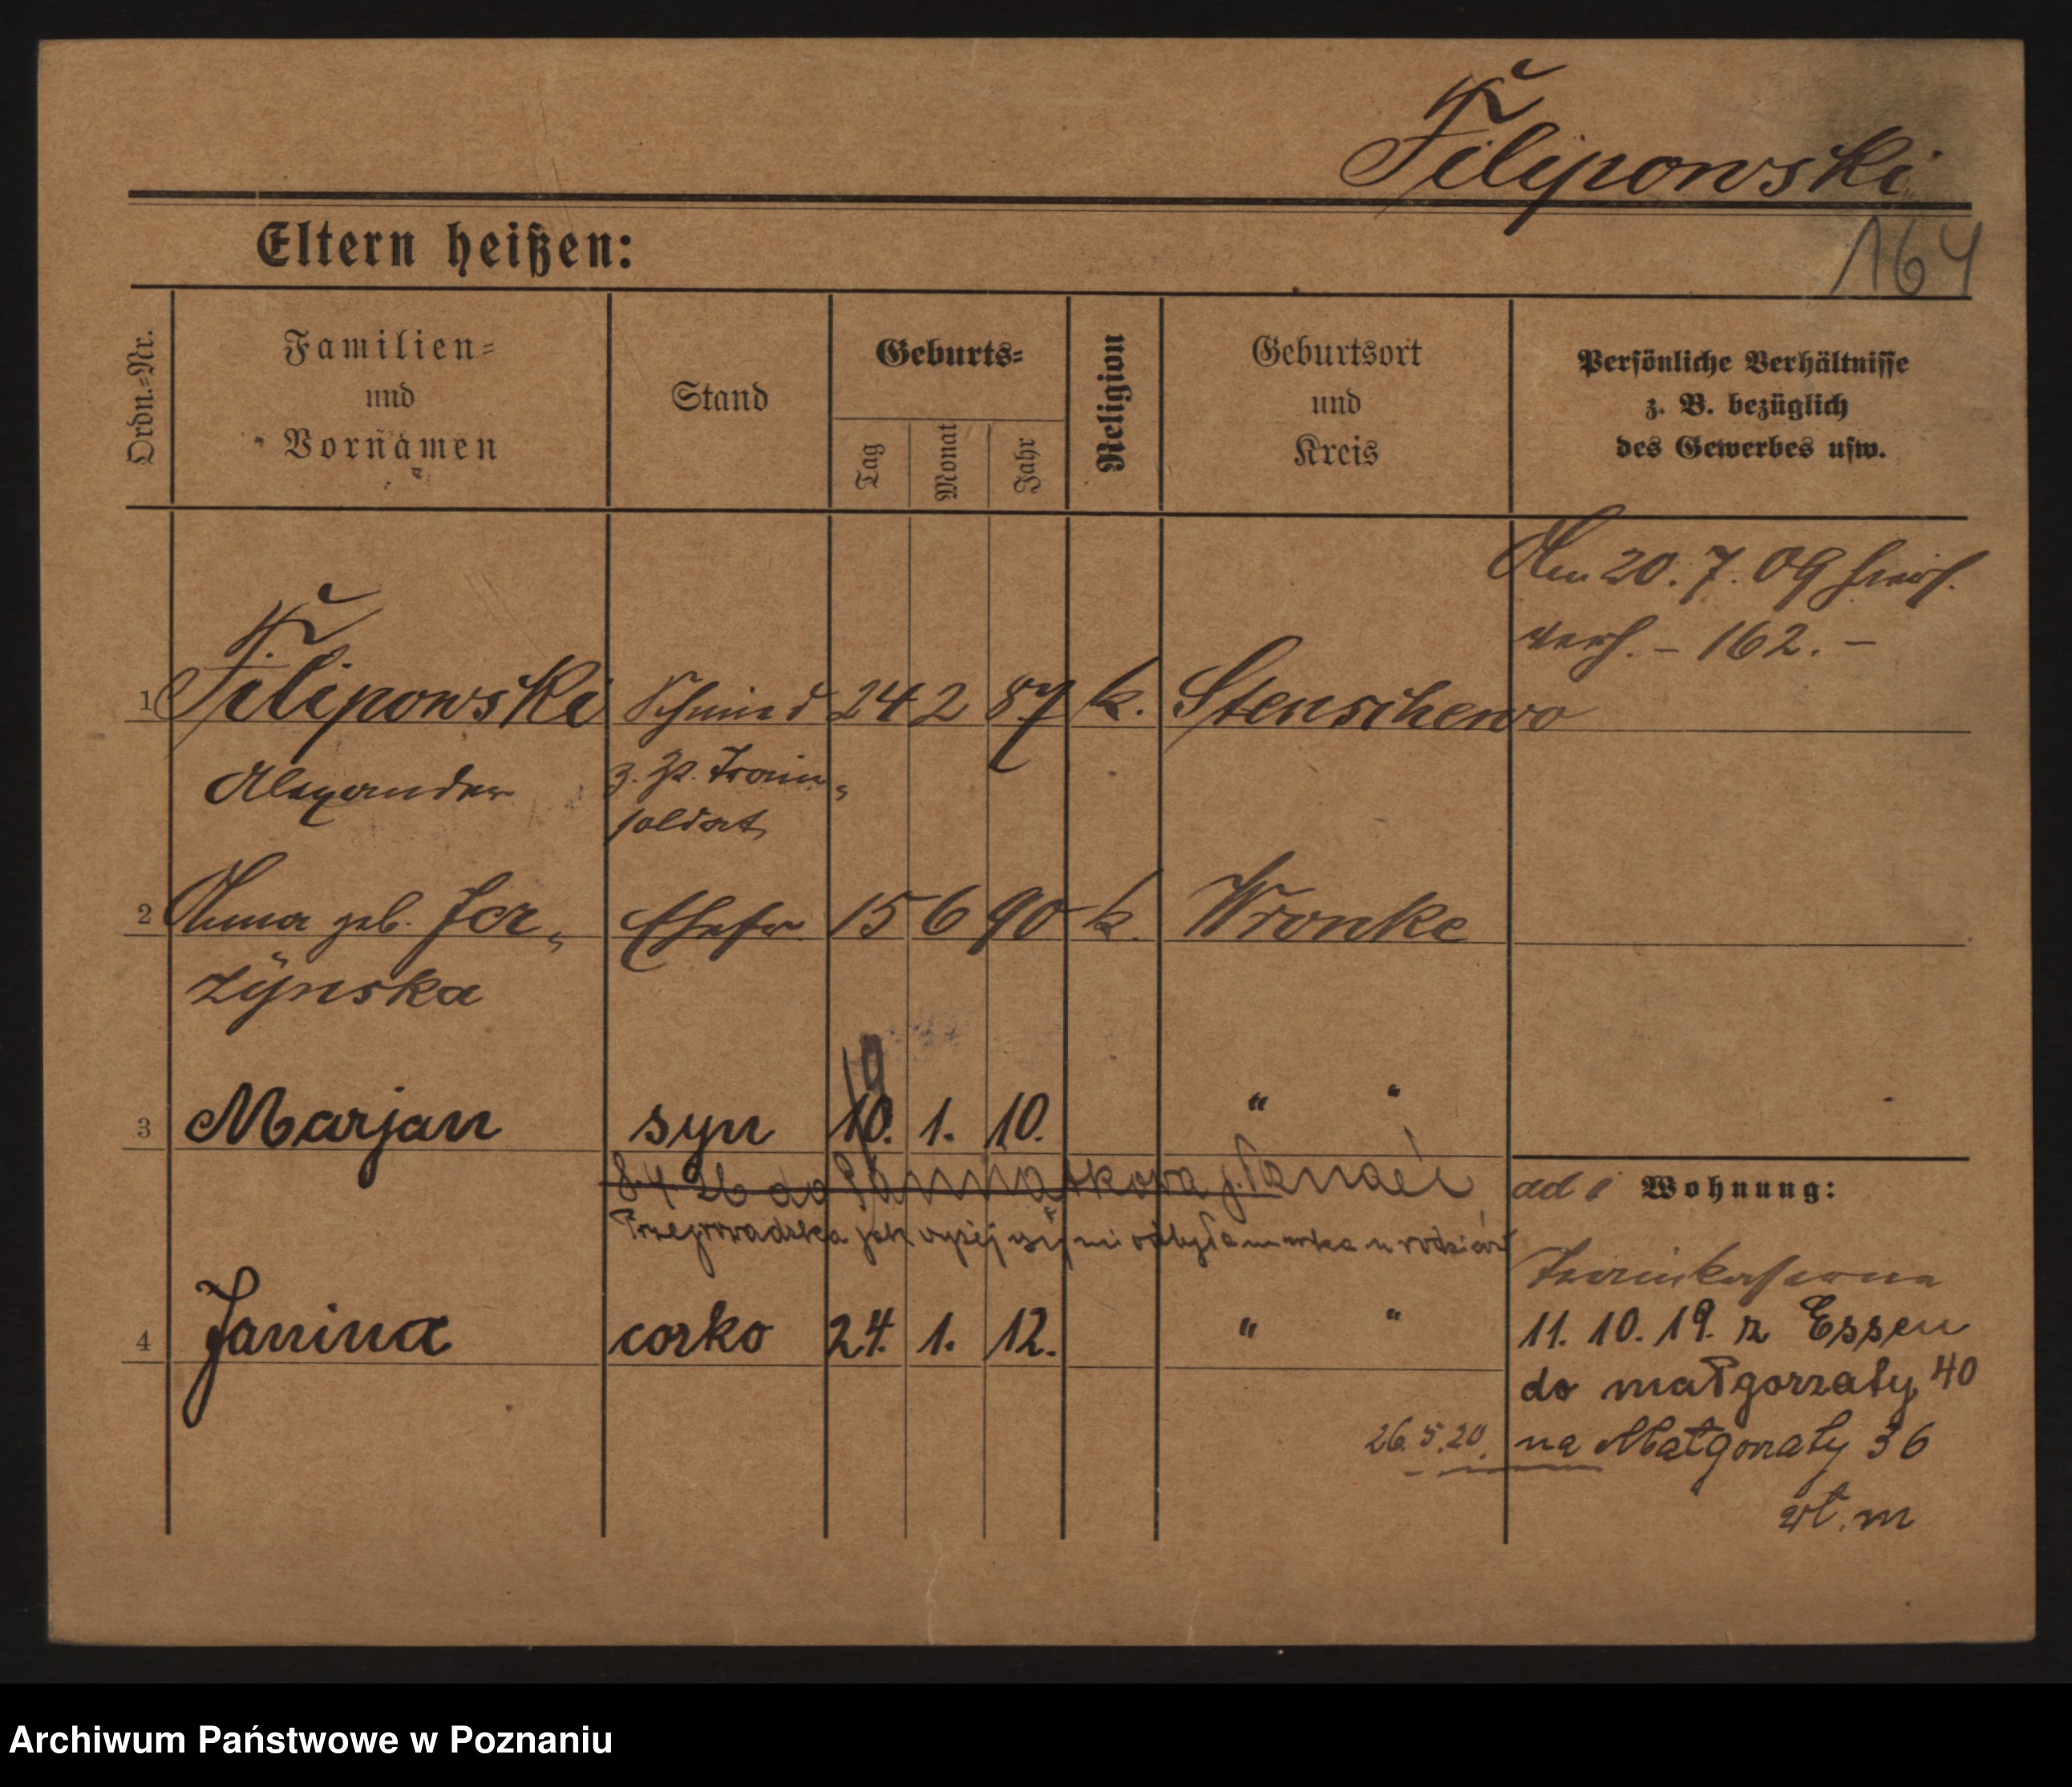 Filipowski
164
Eltern heißen:
Ordn.=Nr.
Familien=
und
Vornamen
Stand
Geburts=
Tag
Monat
Jahr
Religion
Geburtsort
und
Kreis
Persönliche Verhältnisse
z. B. bezüglich
des Gewerbes usw.
Am 20. 7. 09
162. –
1 Filipowski Schmied 24 2 87 k. Stenschewo
Alexander z. Zt. Train=
soldat
2 Anna geb. Jer= Ehefr. 15 6 90 k. Wronke
zÿnska
19
3 Marjan syn 10. 1. 10. " "
8.4.26 do
Przeprowadzka jak wyżej
ad 1 Wohnung:
Trainkaserne
4 Janina corko 24. 1. 12. " "
11. 10. 19. z Essen
do małgorzaty 40
26.5.20. na Małgorzaty 36
wł. m
Archiwum Państwowe w Poznaniu